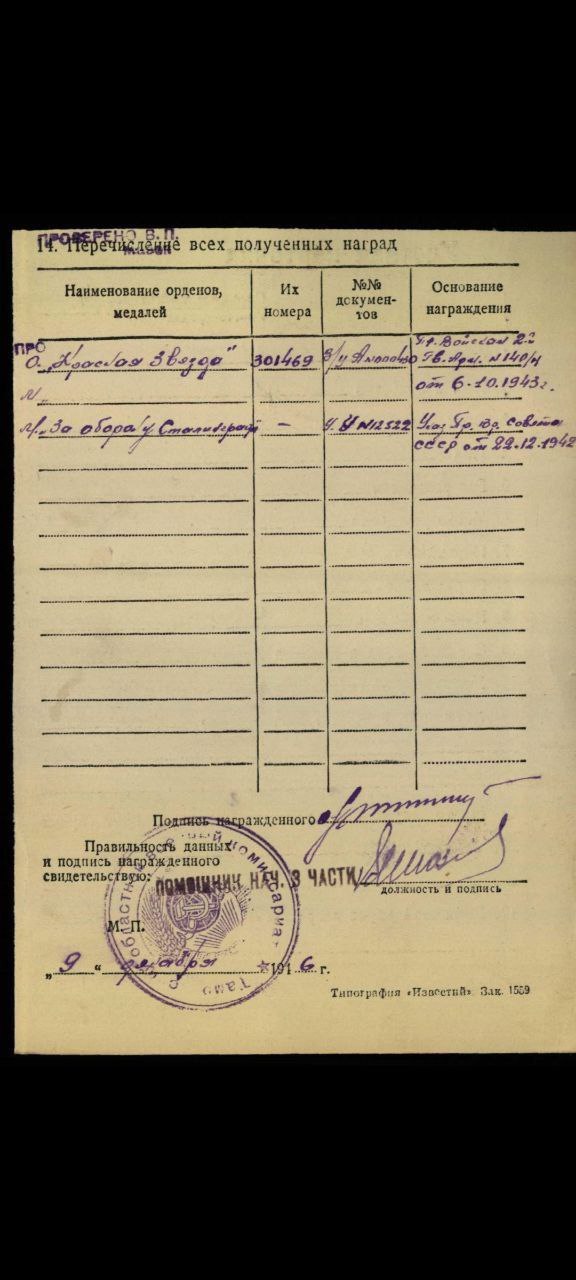 ПРОВЕРЕНО В.П.
14. Перечисление всех полученных наград
Наименование орденов, медалей
Их номера
№№ документов
Основание награждения
ПРО
О. „Красная Звезда" 301469
Пр. Войскам 2-й
Гв. Арм. N 140/н
от 6-10.1943г.
М. „За оборону Сталинграда" — У N12522 Указ Пр. Вр. Совета
СССР от 22.12.1942
Подпись награжденного
Правильность данных
и подпись награжденного
свидетельствую:
ПОМОЩНИК НАЧ. 3 ЧАСТИ
должность и подпись
М. П.
„9" декабря 1946 г.
Типография «Известий». Зак. 1559